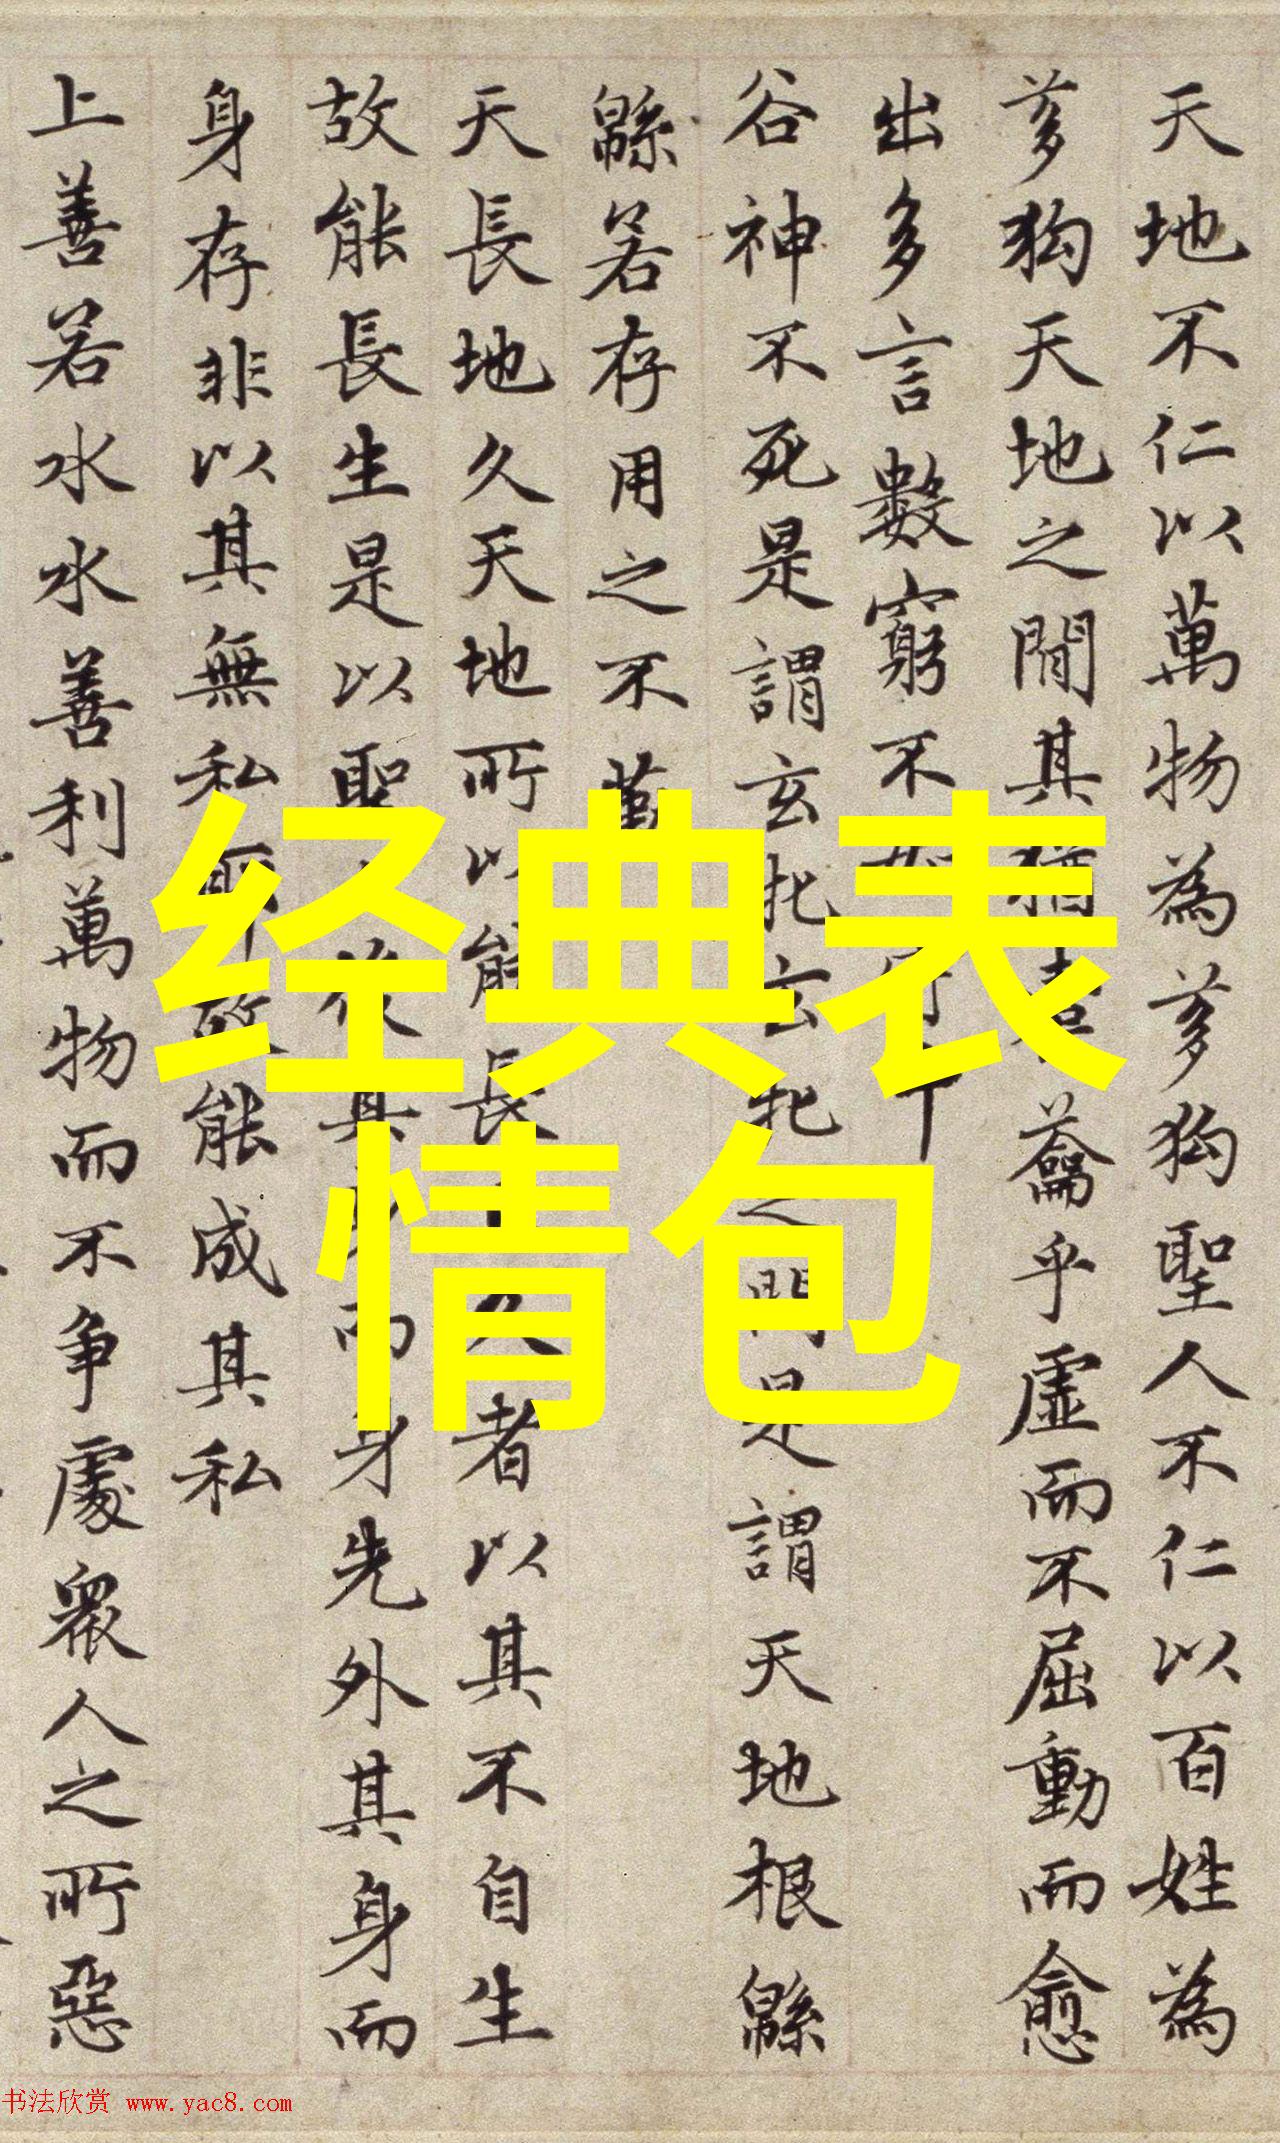 天地不仁以萬物為芻狗聖人不仁以百姓為
芻狗天地之間其猶籥乎虛而不屈動而愈
出多言數窮不
谷神不死是謂玄牝玄牝之門是謂天地根緜
緜若存用之不
天長地久天地所以能長久者以其不自生
故能長生是以聖後其而身先外其身而
身存非以其無私能成其私
上善若水水善利萬物而不争處衆人之所惡
经典表
情包
书法欣赏 www.yac8.com